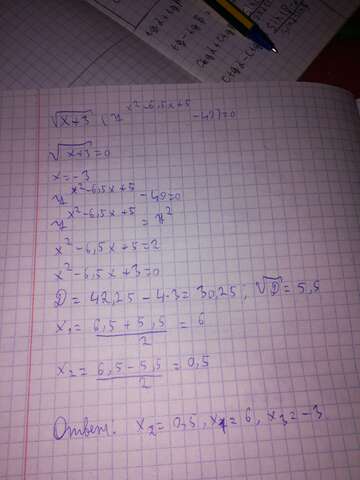 √x+3 (7^(x²-6,5x+5) -49)=0
√x+3=0
x=-3
7^(x²-6,5x+5) -49=0
7^(x²-6,5x+5) = 7²
x²-6,5x+5=2
x²-6,5x+3=0
D = 42,25 - 4·3 = 30,25; √D = 5,5
x₁ = (6,5+5,5)/2 = 6
x₂ = (6,5-5,5)/2 = 0,5
Ответ: x₂ = 0,5, x₁ = 6, x₃ = -3